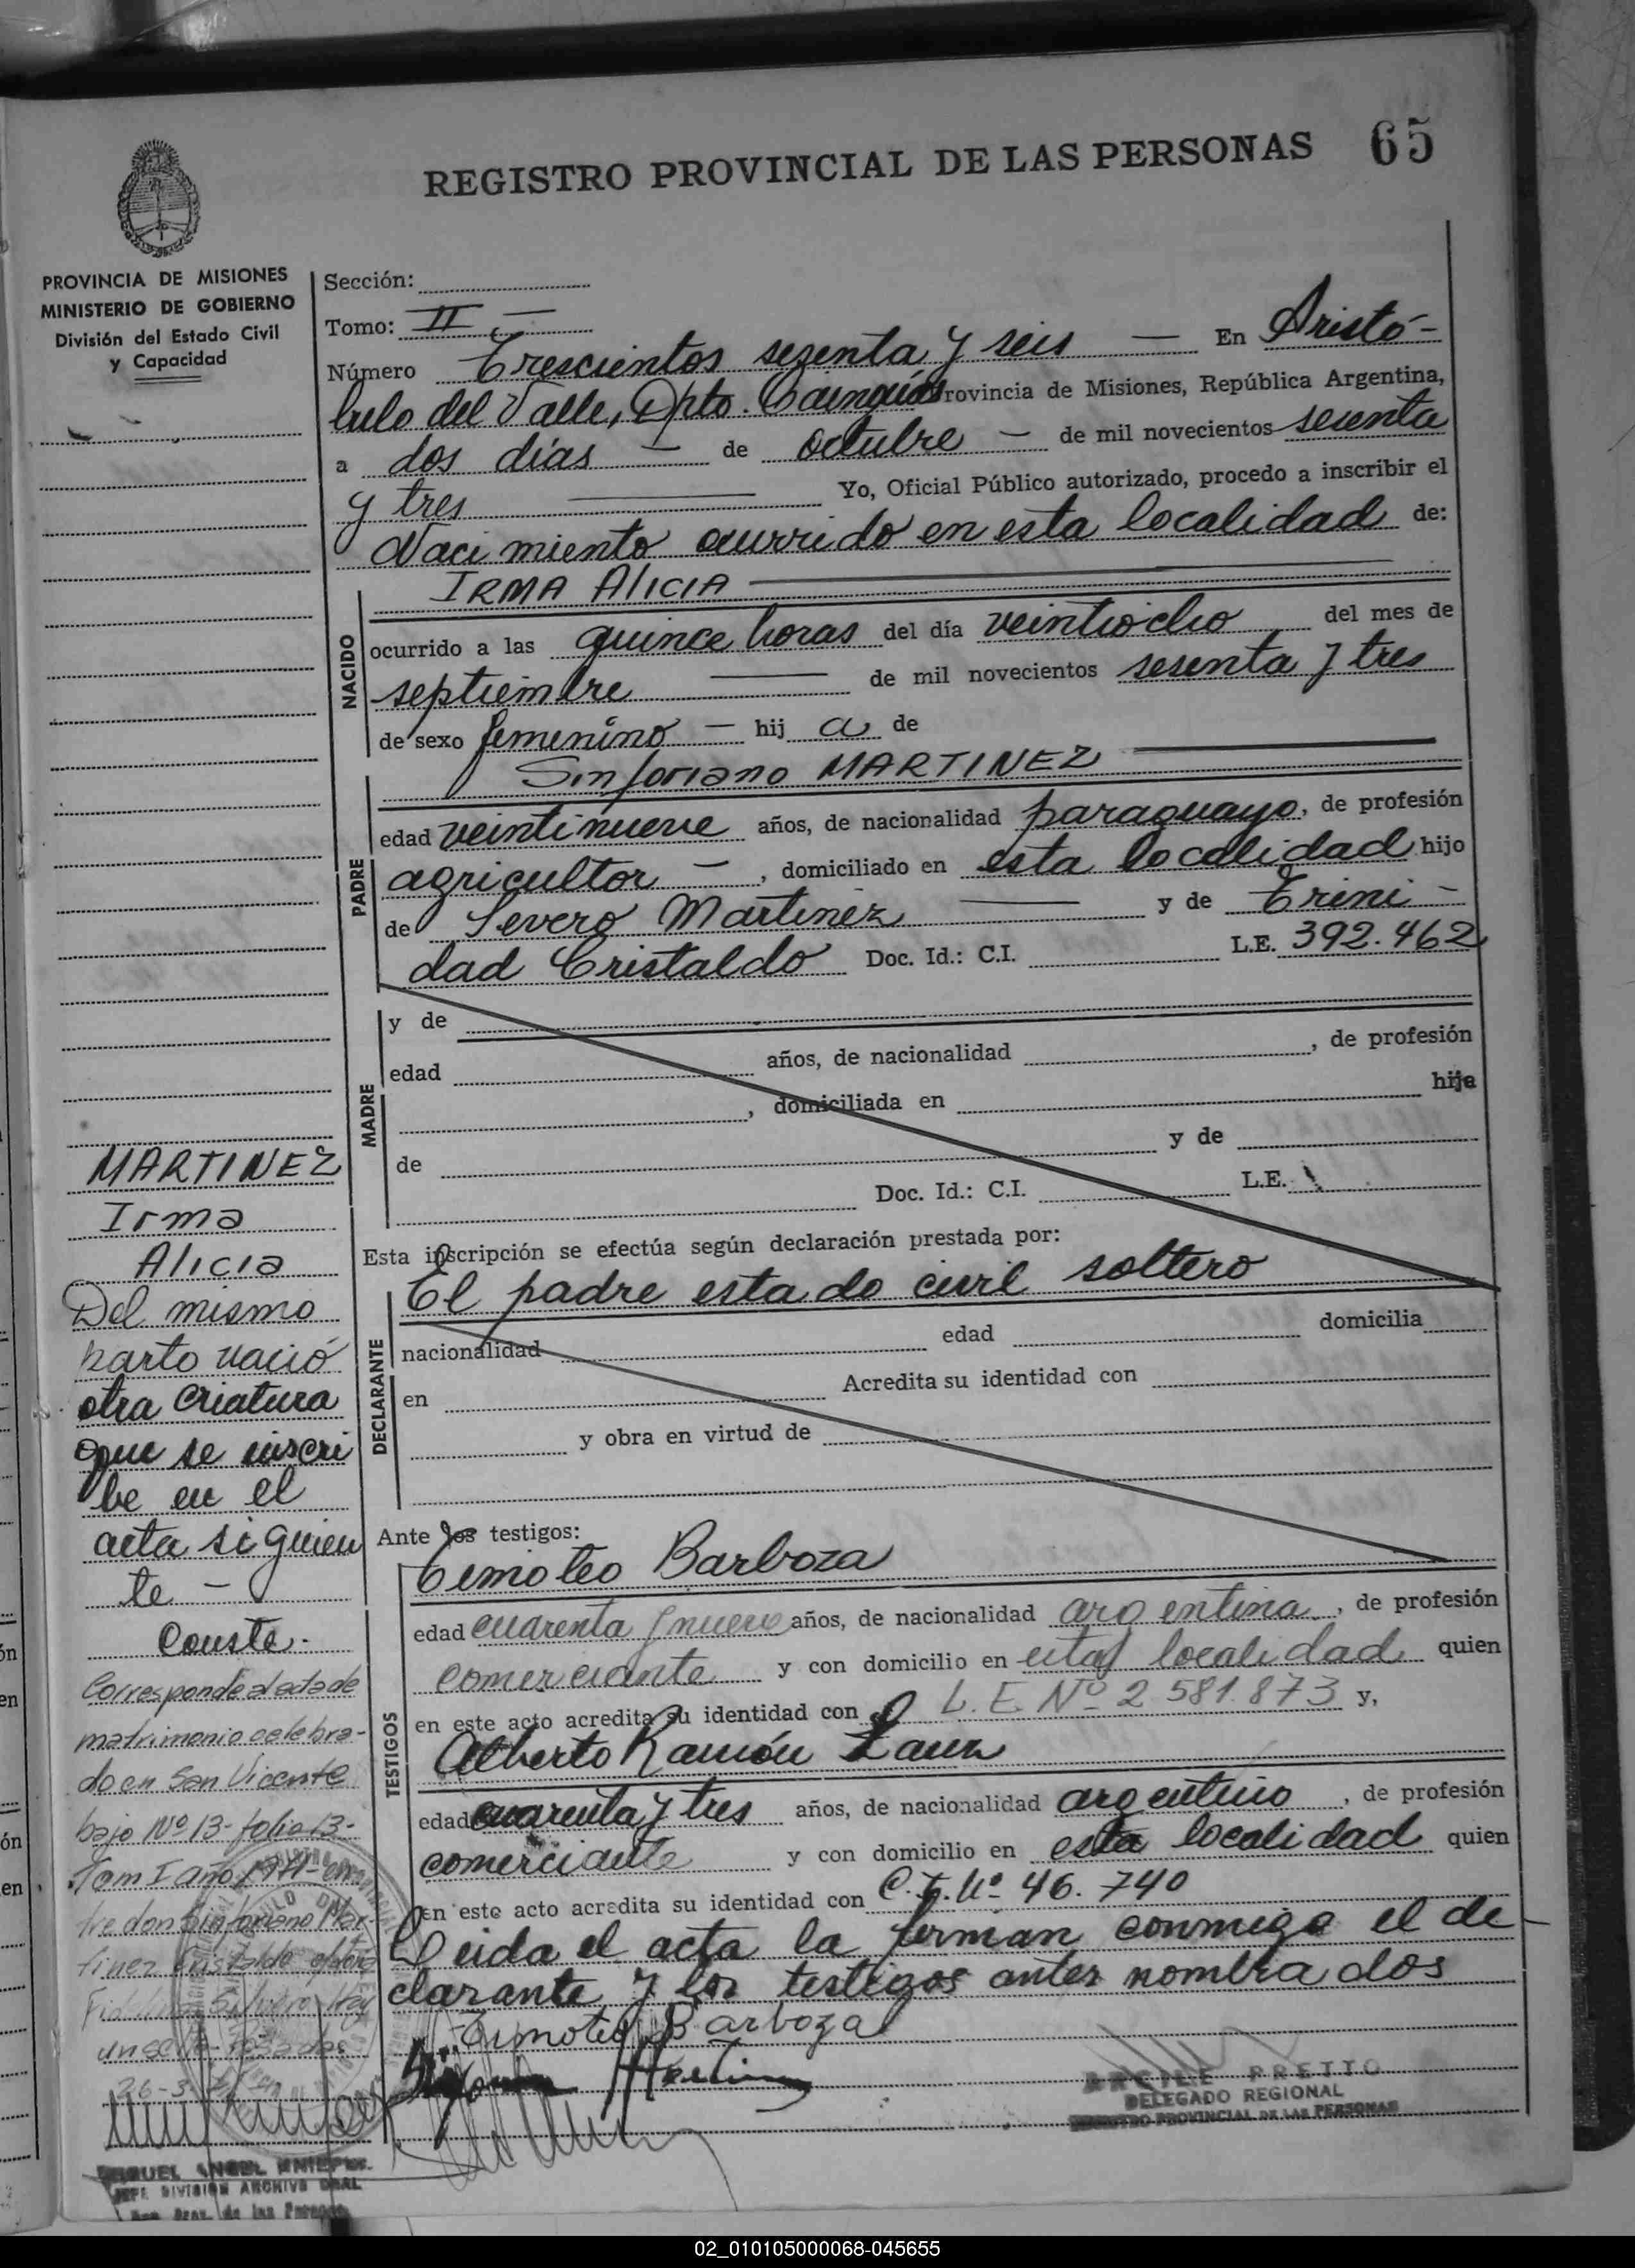 65
REGISTRO PROVINCIAL DE LAS PERSONAS
PROVINCIA DE MISIONES
MINISTERIO DE GOBIERNO
División del Estado Civil
y Capacidad
Sección:
Tomo: II —
Número Trescientos sesenta y seis — En Aristó-
bulo del Valle, Dpto. Cainguás Provincia de Misiones, República Argentina,
a dos días — de octubre — de mil novecientos sesenta
y tres Yo, Oficial Público autorizado, procedo a inscribir el
Nacimiento ocurrido en esta localidad de:
IRMA AlICIA
NACIDO
ocurrido a las quince horas del día veintiocho del mes de
septiembre — de mil novecientos sesenta y tres
de sexo femenino — hij a de
Sinforiano MARTINEZ
PADRE
edad veintinueve años, de nacionalidad paraguayo, de profesión
agricultor —, domiciliado en esta localidad hijo
de Severo Martinez — y de Trini -
dad Cristaldo Doc. Id.: C.I. L.E. 392.462
MADRE
y de
edad años, de nacionalidad , de profesión
, domiciliada en hija
de y de
Doc. Id.: C.I. L.E.
Esta inscripción se efectúa según declaración prestada por:
El padre estado civil soltero
DECLARANTE
nacionalidad edad domicilia
en Acredita su identidad con
y obra en virtud de
Ante los testigos:
TESTIGOS
Timoteo Barboza
edad cuarenta y nueve años, de nacionalidad argentina, de profesión
comerciante y con domicilio en esta localidad quien
en este acto acredita su identidad con L.E. Nº 2.581.873 y,
Alberto Ramón
edad cuarenta y tres años, de nacionalidad argentino, de profesión
comerciante y con domicilio en esta localidad quien
en este acto acredita su identidad con C.I. Nº 46.740
Leida el acta la firman conmigo el de-
clarante y los testigos antes nombrados
Timoteo Barboza
PRETTO
DELEGADO REGIONAL
REGISTRO PROVINCIAL DE LAS PERSONAS
MARTINEZ
Irma
Alicia
Del mismo
parto nació
otra criatura
que se inscri
be en el
acta siguien
te —
Conste.
Corresponde al acta de
matrimonio celebra-
do en San Vicente
bajo Nº 13- folio 13-
Tom I año 1971- en-
tre don Sinforiano Mar-
tinez Cristaldo
MIGUEL ANGEL
JEFE DIVISION ARCHIVO GRAL
Reg. Prov. de las Personas
02_010105000068-045655